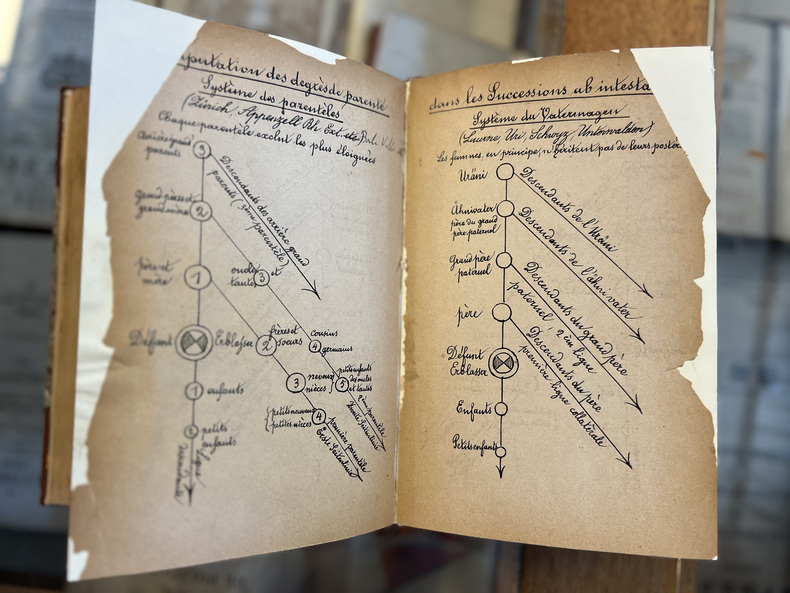 putation des degrés de parenté
Système des parentèles
(Zürich, Appenzell Rh. Ext.
Chaque parentèle exclut les plus éloignées
Arrière grand
parents
3
Descendants des arrière grand
parents (3ème parentèle)
grand-père et
grand-mère
2
père et
mère
1
oncles et
tantes
3
Défunt
Erblasser
frères et
soeurs
2
cousins
germains
4
1
enfants
3
neveux
nièces
5
petits enfants
des oncles
et tantes
2ème parentèle
petits
enfants
petits neveux
petites nièces
4
première parentèle
dans les Successions ab intesta
Système du Vatermagen
(Lucerne, Uri, Schwyz, Unterwalden)
Les femmes, en principe, n'héritent pas de leurs
Uräni
Descendants de l'Uräni
Ähnivater
père du grand
père paternel
Descendants de l'ähnivater
Grand père
paternel
Descendants du grand père
paternel, 2e ligne
père
Descendants du père
première ligne collatérale
Défunt
Erblasser
Enfants
Petits enfants